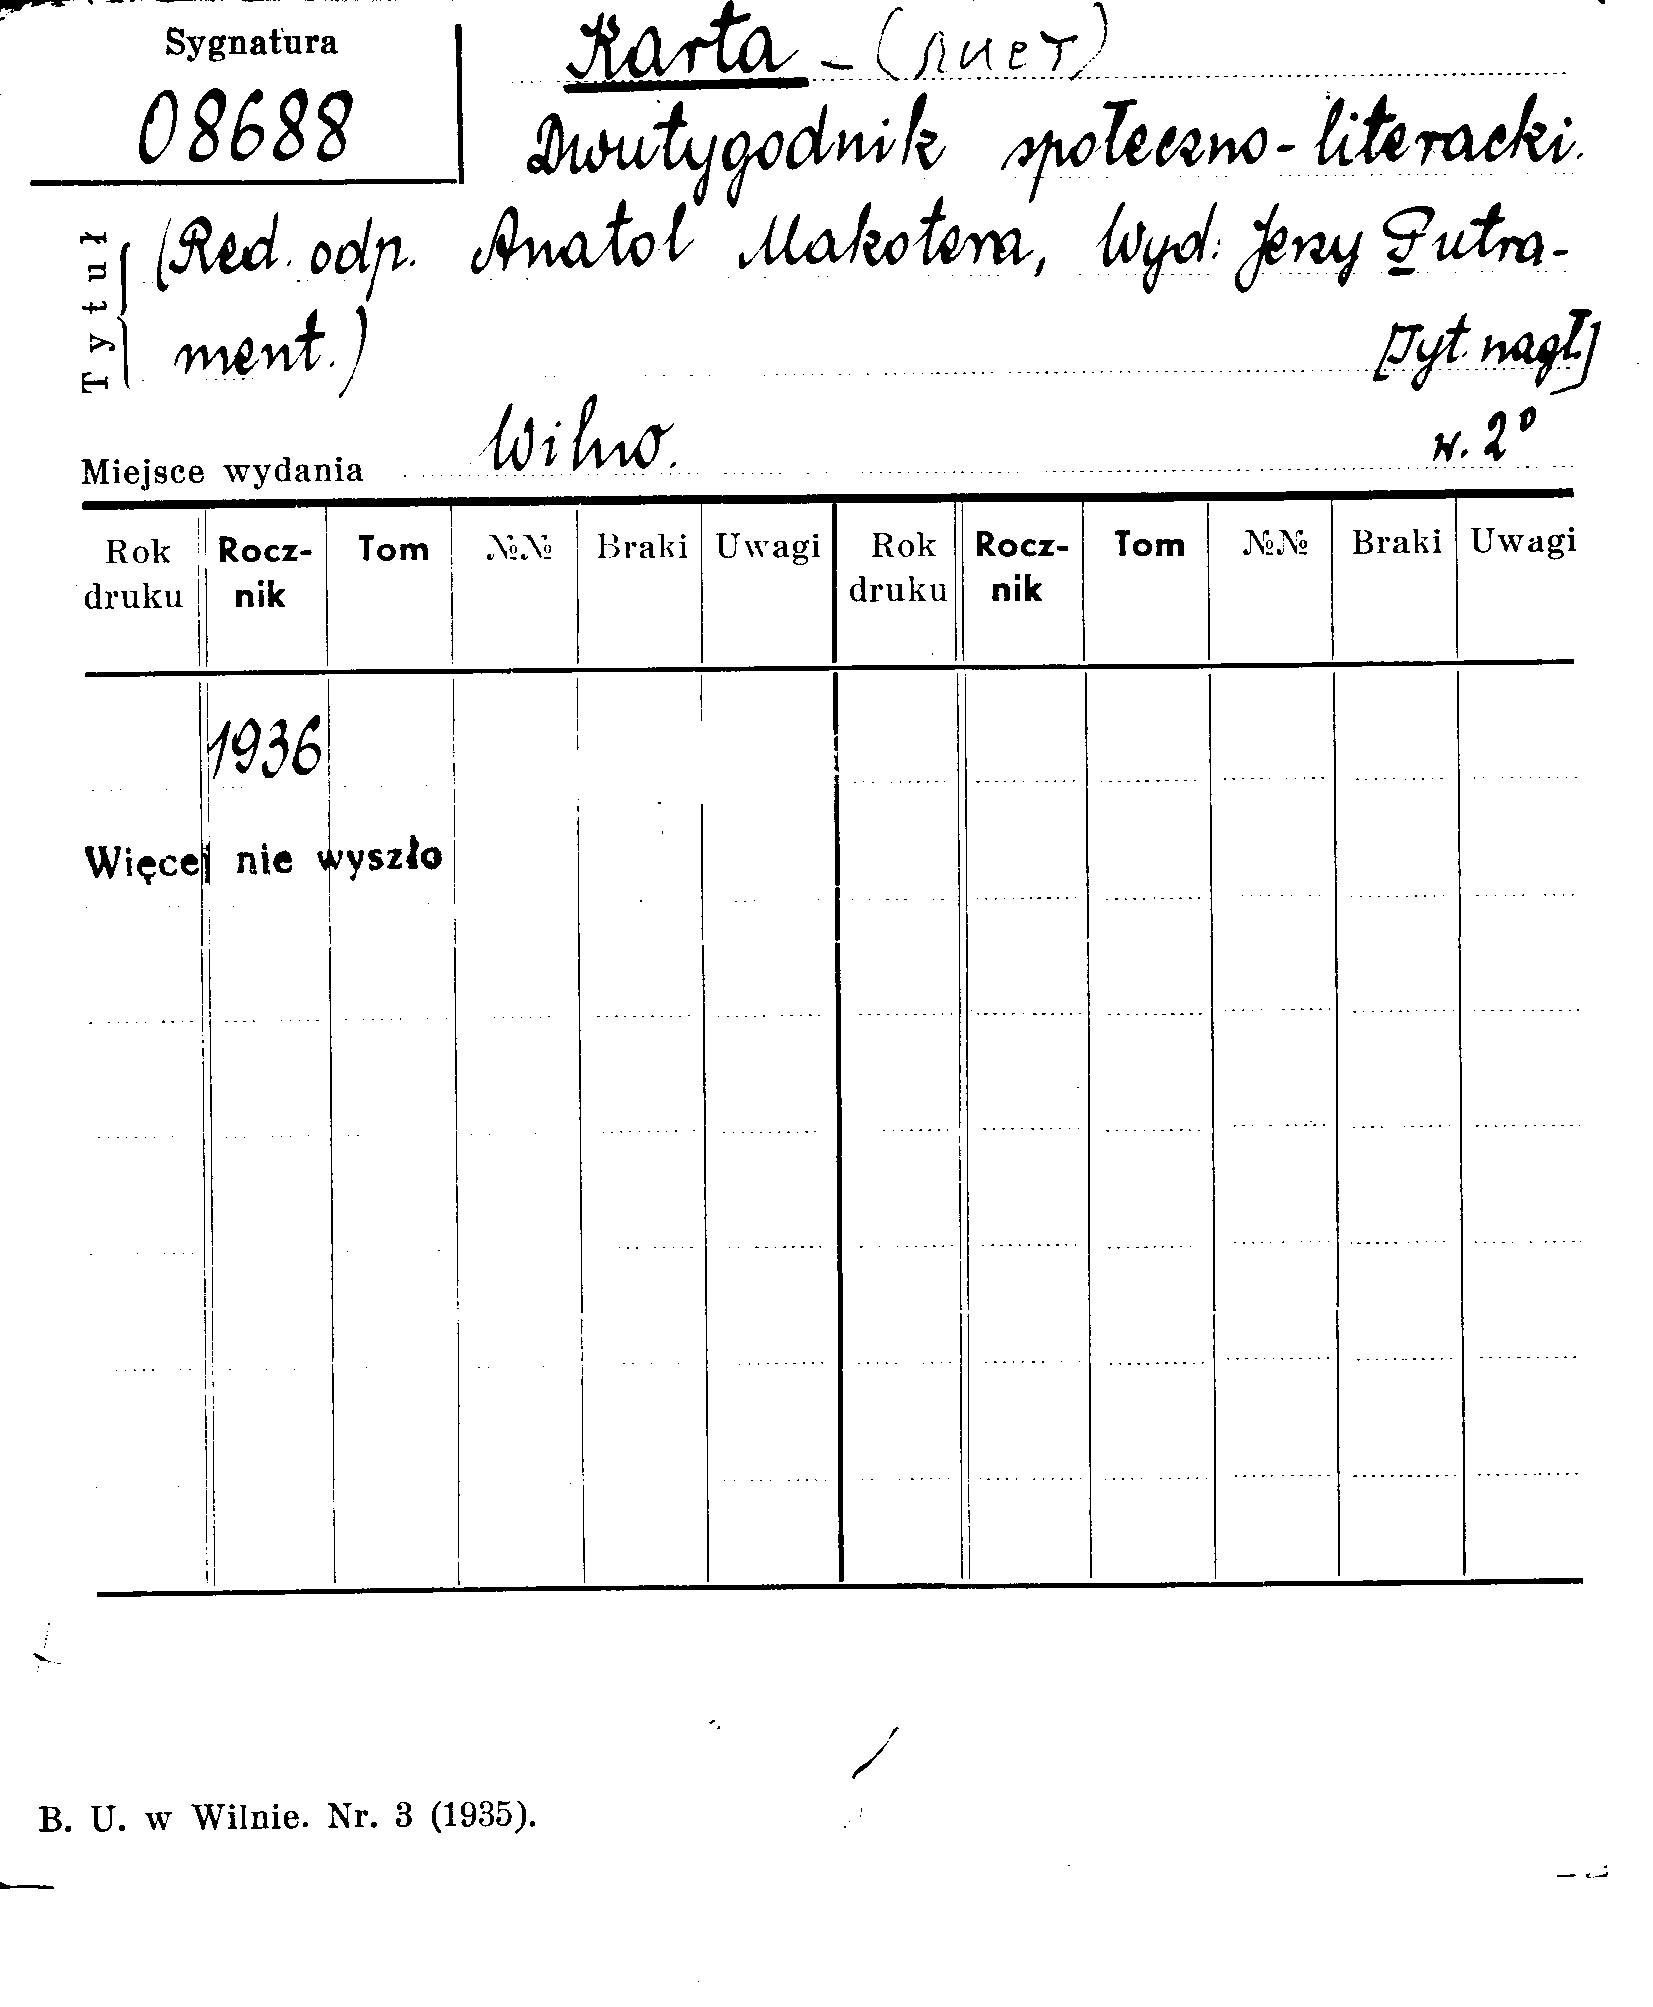 Sygnatura
08688
Karta - (лист)
Dwutygodnik społeczno-literacki.
Tytuł
(Red. odp. Anatol Makotera, Wyd: Jerzy Putra-
ment.) [Tyt. nagł.]
Miejsce wydania Wilno. w. 2°
Rok druku Rocz-nik Tom №№ Braki Uwagi Rok druku Rocz-nik Tom №№ Braki Uwagi
1936
Więcej nie wyszło
B. U. w Wilnie. Nr. 3 (1935).